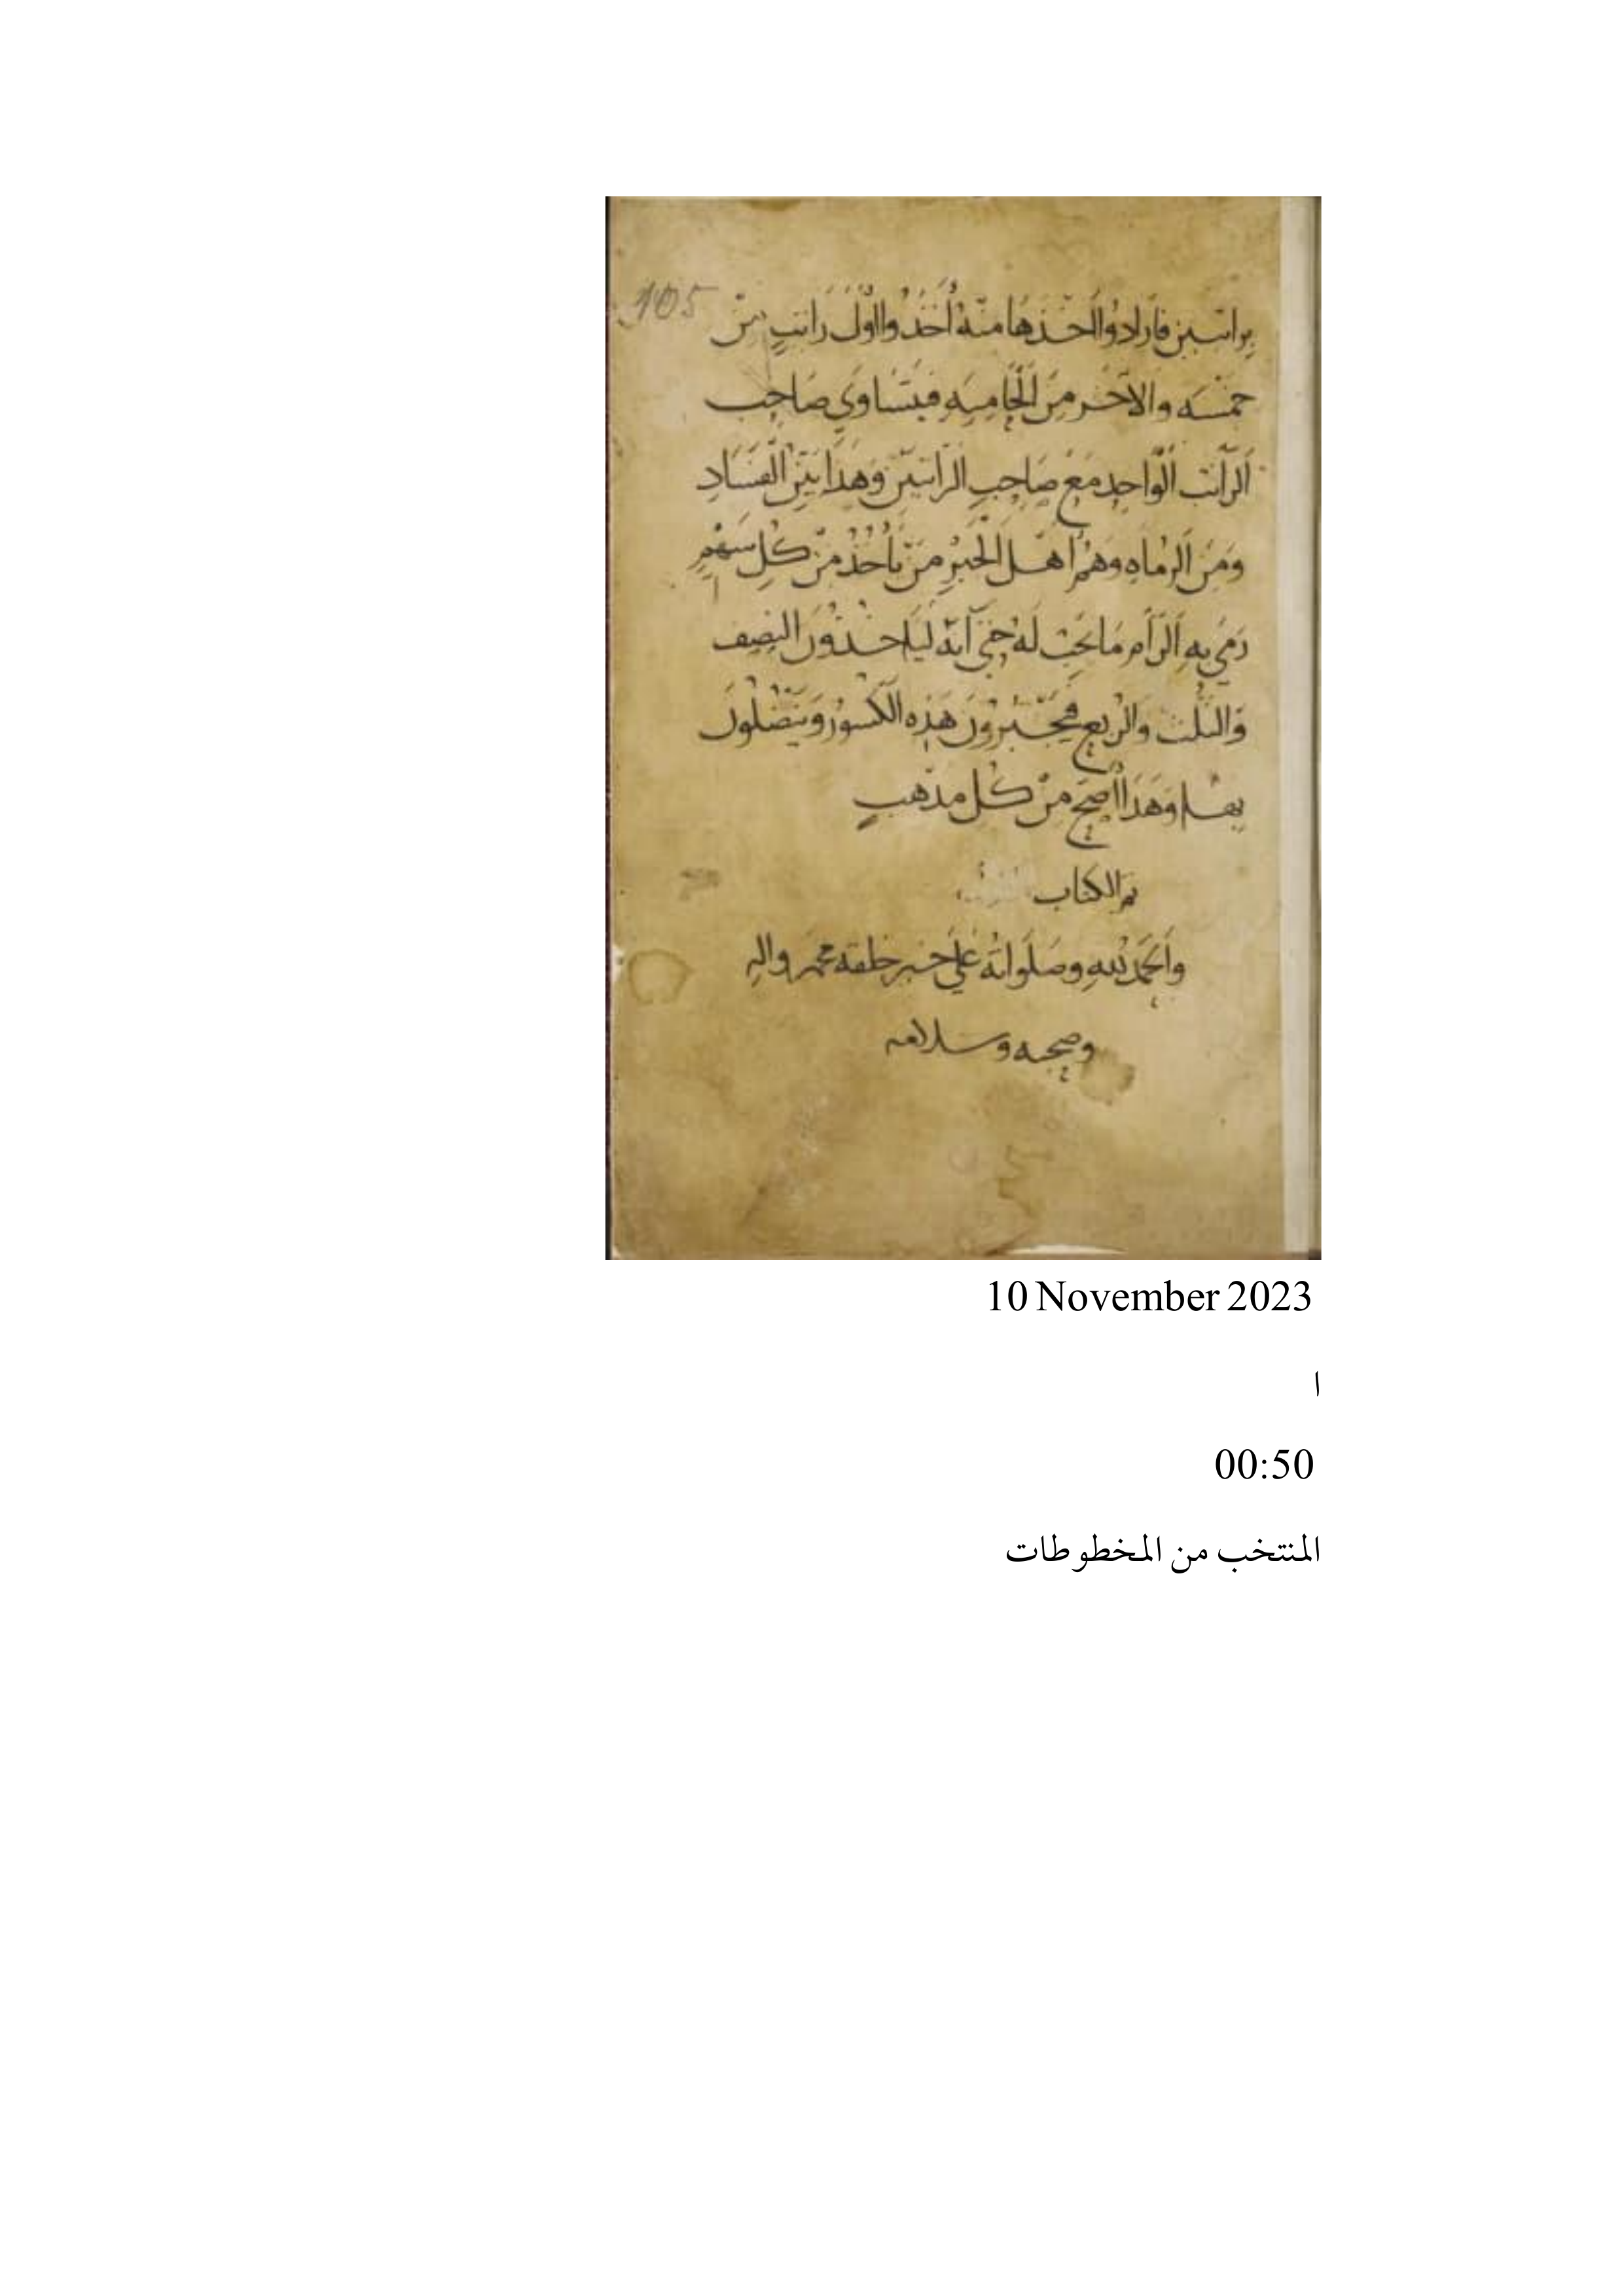 105
براتبين فارادوا اخذها منه اخذوا اول راتب من
خمسه والاخر من الخامسه فيتساوي صاحب
الراتب الواحد مع صاحب الراتبين وهذا بين الفساد
ومن الرماه وهم اهل الخبر من ياخذ من كل سهم
رمي به الرام ما يجب له حتى انه لياخذون النصف
والثلث والربع فيجبرون هذه الكسور ويتضلون
بها وهذا اصح من كل مذهب
تم الكتاب
والحمد لله وصلواته على خير خلقه محمد واله
وصحبه وسلامه
10 November 2023
ا
00:50
المنتخب من المخطوطات